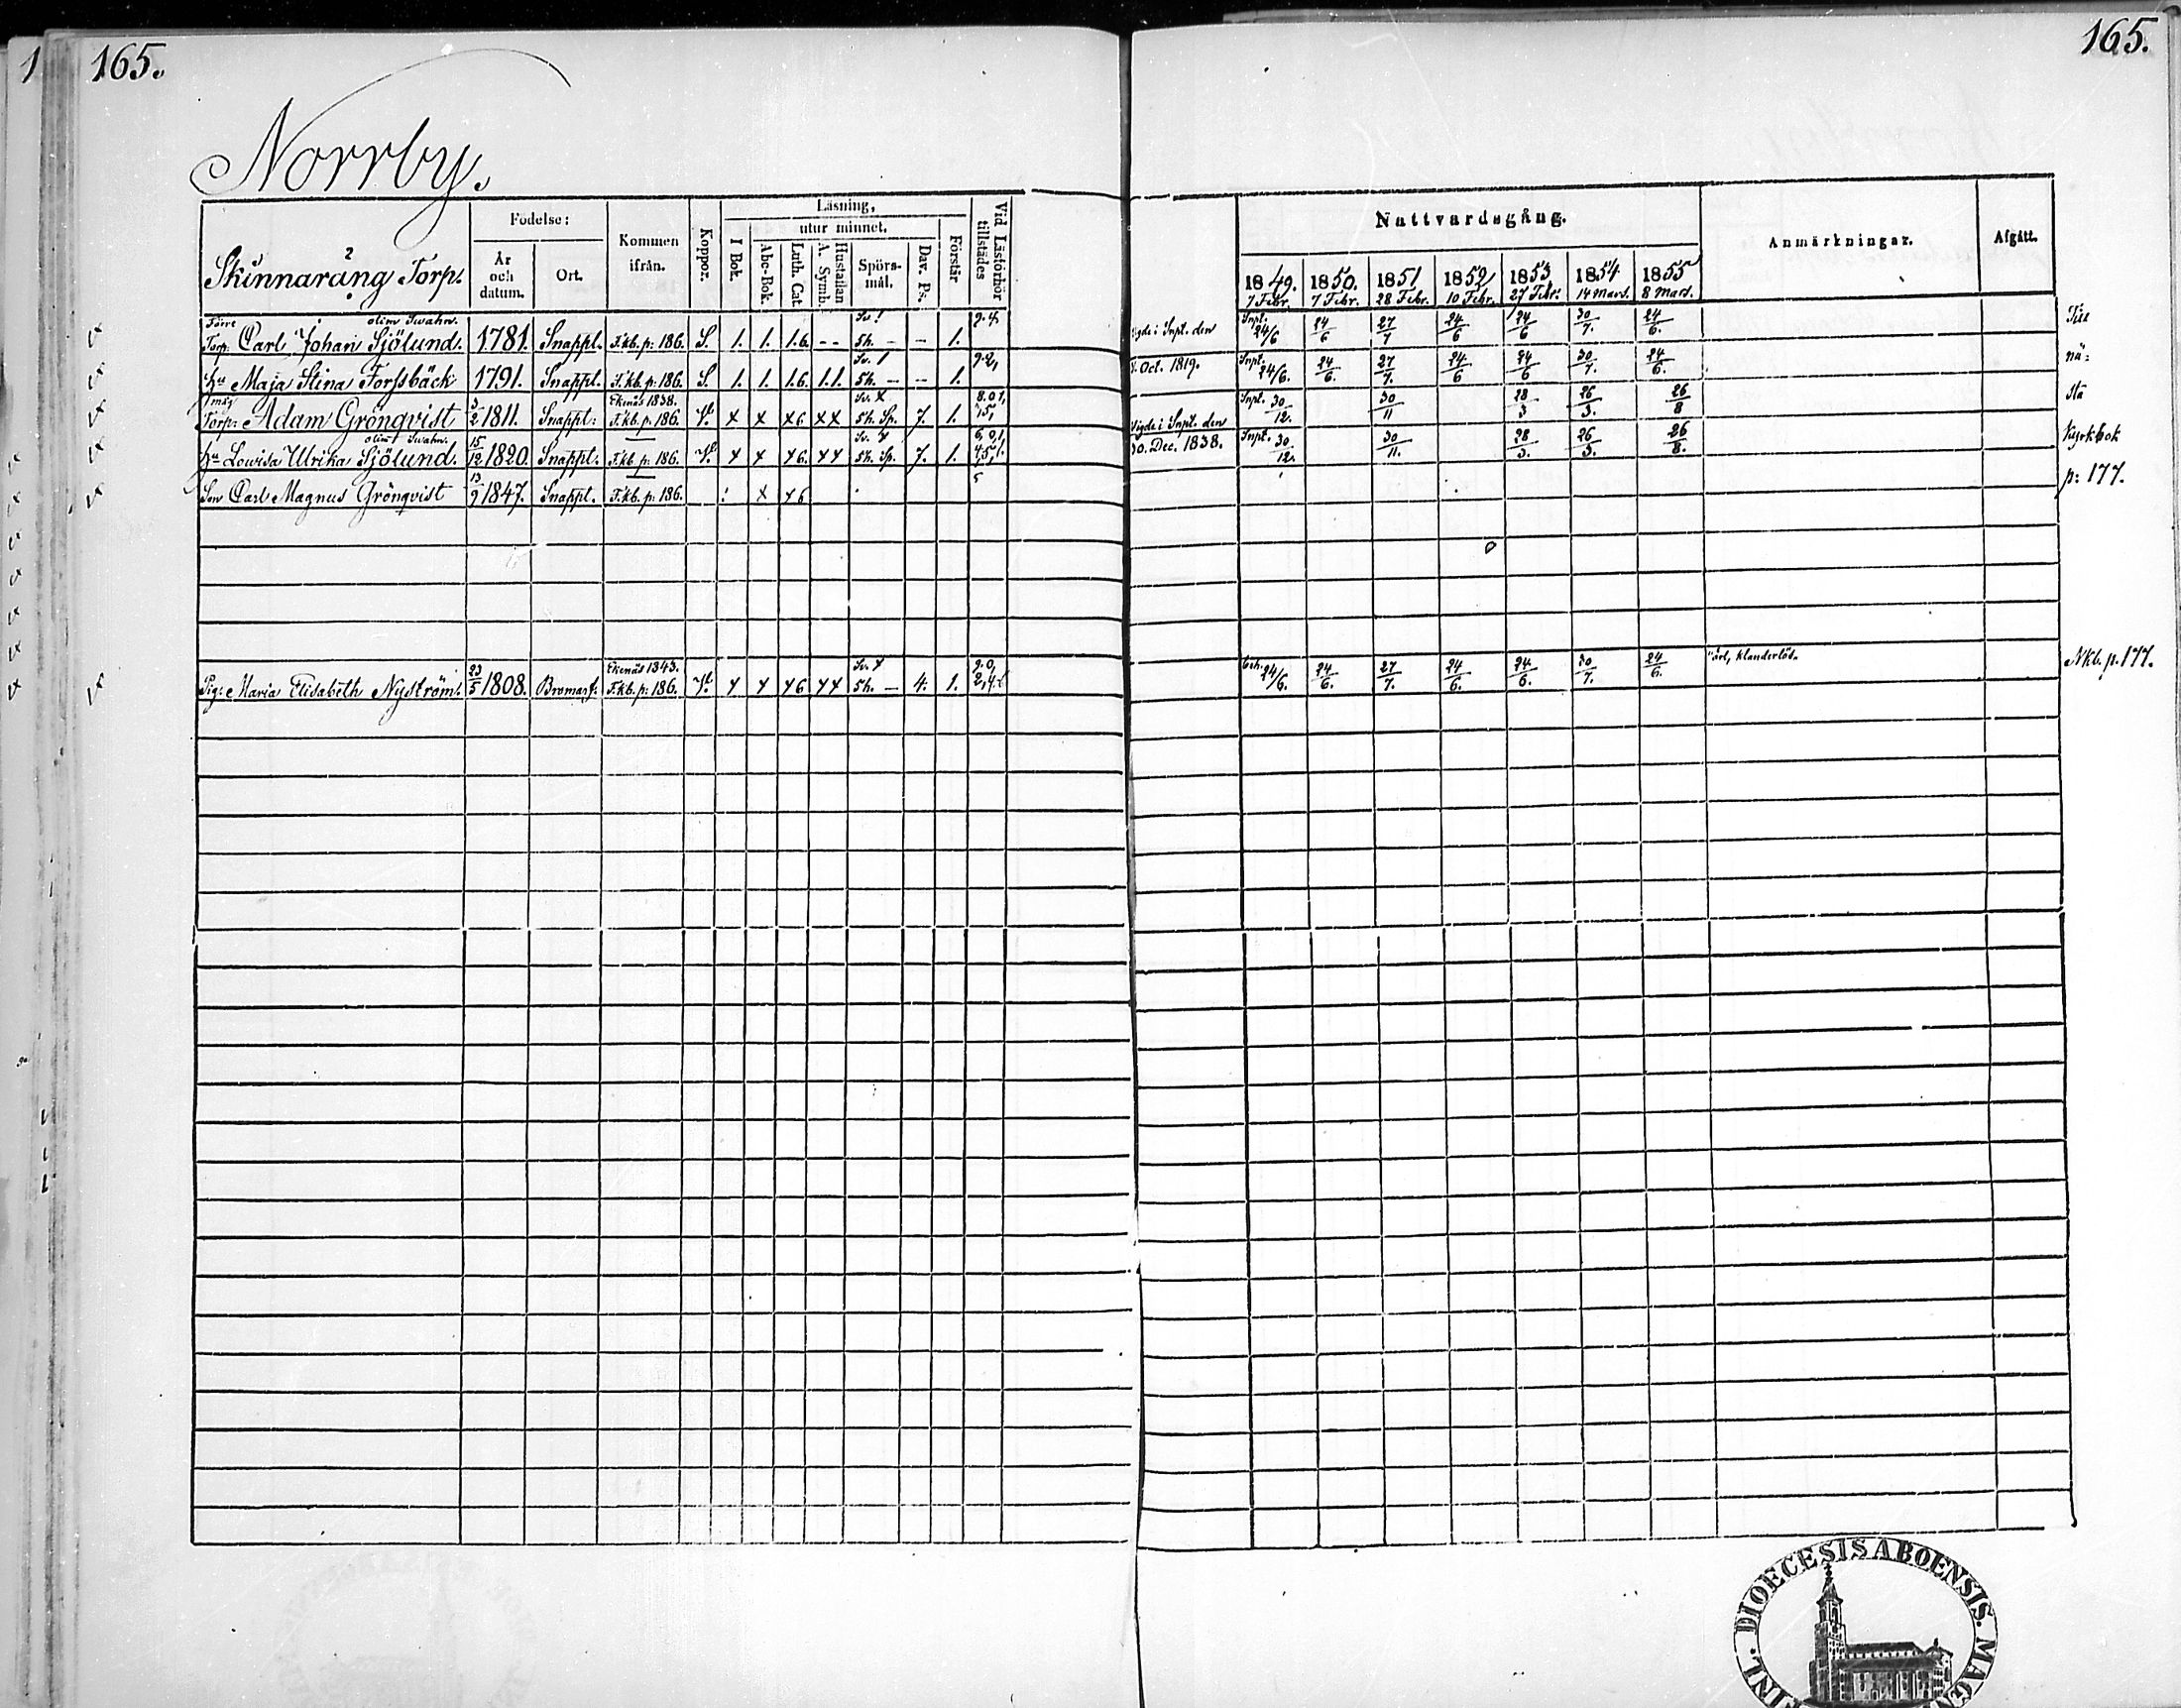 165.
165.
Norrby.
Skinnaräng Torp.
Födelse:
År och datum.
Ort.
Kommen ifrån.
Koppor.
Läsning,
utur minnet.
I Bok.
Abc-Bok.
Luth. Cat.
A. Symb.
Hustaflan
Spörs-mål.
Dav. Ps.
Förstår
Vid Läsförhör tillstädes
Nattvardsgång.
1849. 1850. 1851 1852 1853 1854 1855
7 Febr. 7 Febr. 28 Febr. 10 Febr. 27 Febr. 14 Mars. 8 Mars.
Anmärkningar.
Afgått.
Förre olim Swahn. Sv. 1
Torp. Carl Johan Sjölund. 1781. Snappt. F.kb. p: 186. S. 1. 1. 1.6. - - 5h. - - 1. Snpt. 24/6 24/6 27/7 24/6 24/6 30/7. 24/6. Till
Hu Maja Stina Forssbäck 1791. Snappt. F.kb. p: 186. S. 1. 1. 1.6. 1.1. Sv. 1 5h. - - 1. Oct. 1819. Snpt. 24/6. 24/6. 27/7. 24/6 24/6 30/7. 24/6. nä:
måg Ekenäs 1838.
Torp: Adam Grönqvist 3/2 1811. Snappt. F.kb. p. 186. x x x6 xx Sv. x 5h. Sp. 7. 1. Vigde i Snpt. den Snpt. 30/12. 30/11 28/3 26/3. 26/8 sta
olim Swahn.
Hu Lowisa Ulrika Sjölund. 15/12 1820. Snappt. F.kb. p: 186. x x x6. xx 5h. Sp. 7. 1. 30. Dec. 1838. Snpt. 30/12. 30/11. 28/3. 26/3. 26/8. Kyrkbok
Son Carl Magnus Grönqvist 13/9 1847. Snappt. F.kb. p: 186. x x6 p: 177.
Ekenäs 1843.
Pig: Maria Elisabeth Nyström. 23/5 1808. Bromarf. F.kb. p: 186. x x x6 xx Sv. x 5h. - 4. 1. 24/6. 24/6. 27/7. 24/6. 24/6. 30/7. 24/6. ärl, klanderlös. Nkb. p. 177.
FINL. DIOECESIS ABOENSIS. MAGN